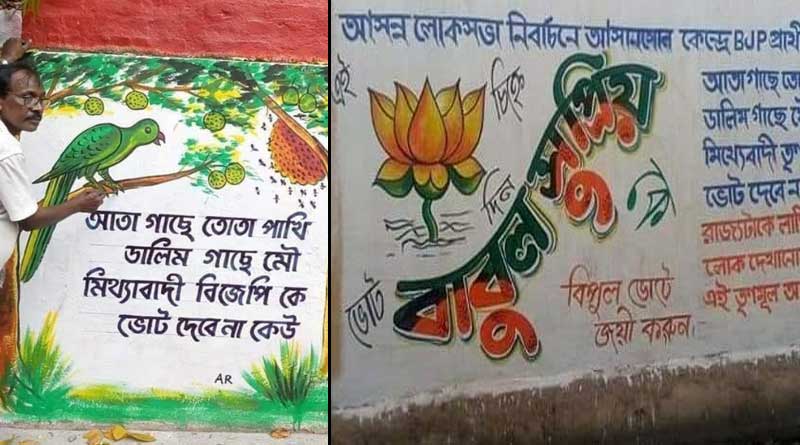 আতা গাছে তোতা পাখি
ডালিম গাছে মৌ
মিথ্যাবাদী বিজেপি কে
ভোট দেবে না কেউ
AR
আসন্ন লোকসভা নির্বাচনে আসানসোল কেন্দ্রে BJP প্রার্থী
এই
চিহ্নে
ভোট
দিন
বাবুল সুপ্রিয়
কে
বিপুল ভোটে
জয়ী করুন।
আতা গাছে
ডালিম গাছে
মিথ্যেবাদী
ভোট দেবে না
লোক দেখানো
এই তৃণমূল